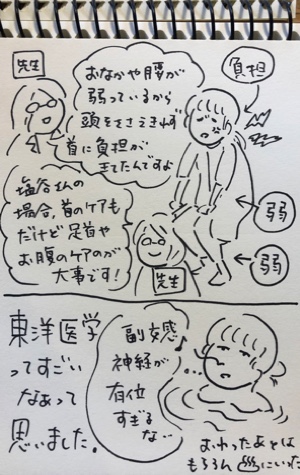 先生
おなかや腰が
弱っているから
頭をささえきれず
首に負担が
きてたんですよ
負担
塩谷さんの
場合、首のケアも
だけど足首や
お腹のケアのが
大事です!
先生
弱
弱
東洋医学
ってすごい
なぁって
思いました。
副交感
神経が
有位
すぎるな…
おわったあとは
にいった